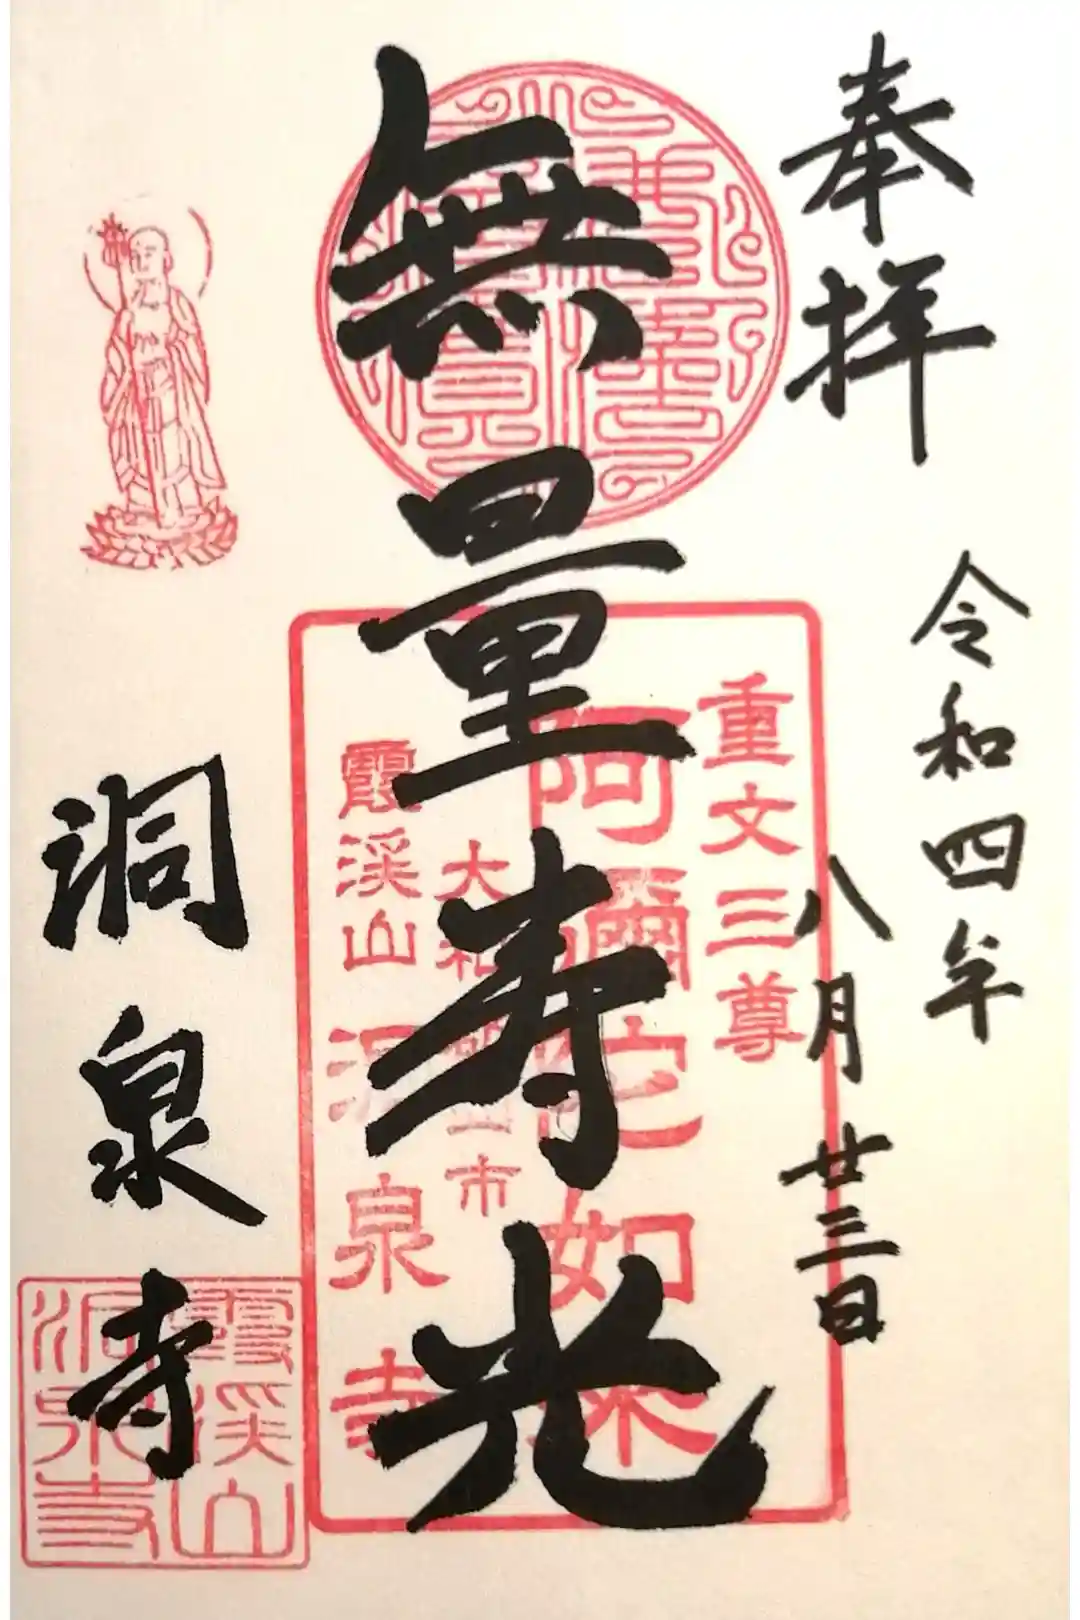 奉拝
令和四年
八月廿三日
無量寿光
洞泉寺
重文三尊
阿彌陀如来
大和郡山市
霞渓山
洞泉寺
霞渓山
洞泉寺